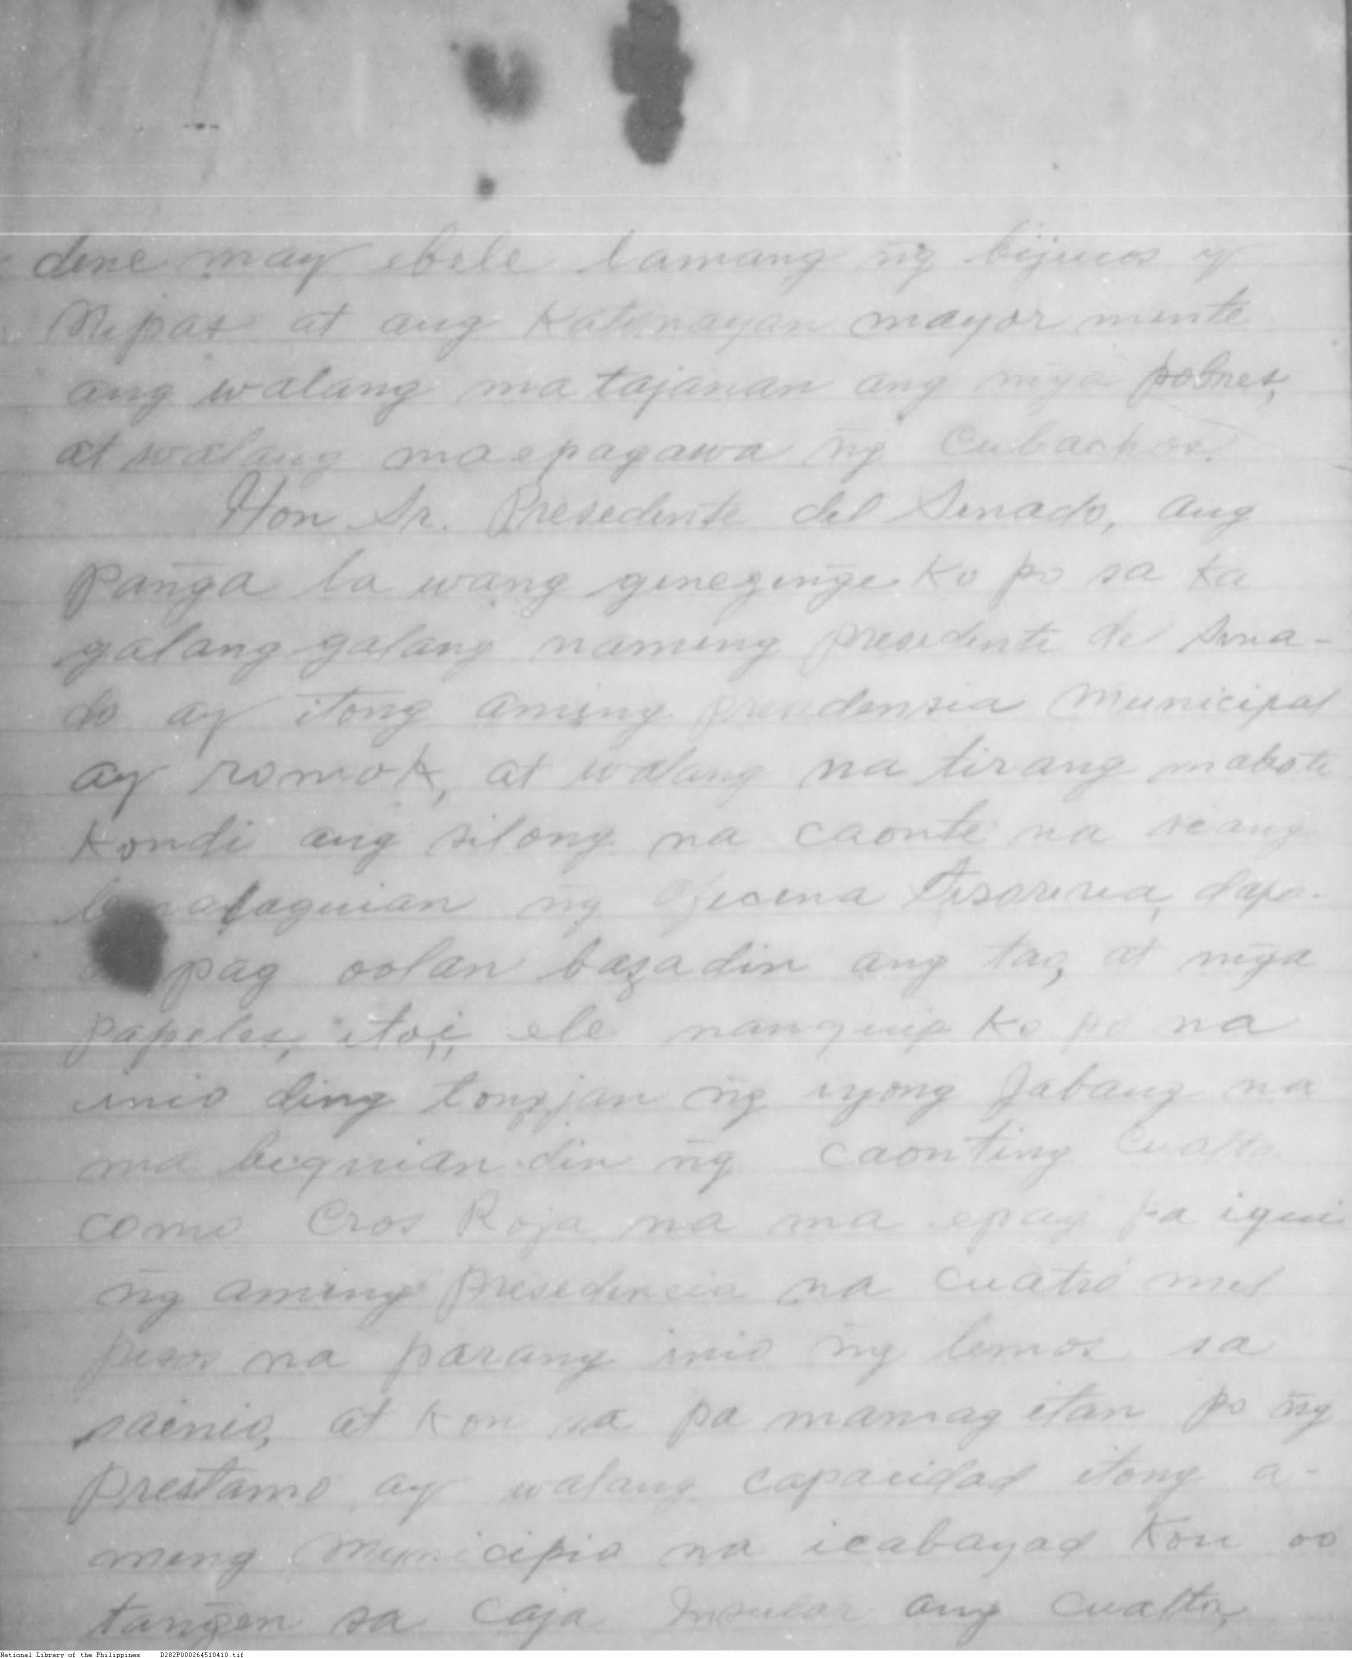 dine may ebele lamang ñg bijucos y
Nepas at ang Katunayan mayor mente
ang walang ma tajanan ang mga pobres,
at walang maepagawa ñg Cubachos.
Hon Sr. Presedente del Senado, ang
pañga la wang gineginge Ko po sa ka
galang galang naming presedente del Sena-
do ay itong aming presedensia Municipal
ay romok, at walang na tirang mabote
Kondi ang silong na caonte na seang
laguian ñg Ofecena Tesoreria, dapo-
pag oolan basa din ang tao, at mga
papeles, itoi, ele nanguip Ko po na
inio ding tongjan ñg iyong Jabang na
ma beguian din ñg caonting Cualta
como Cros Roja na ma epag pa igui
ñg aming presedencia na cuatro mel
pesos na parang inio ñg lemos sa
saenio, at Kon sa pa mamag itan po ñg
prestamo ay walang capacidad itong a-
meng Municipio na icabayad Kon oo
tangen sa Caja Insular ang cualta,
National Library of the Philippines D282P000264510410.tif